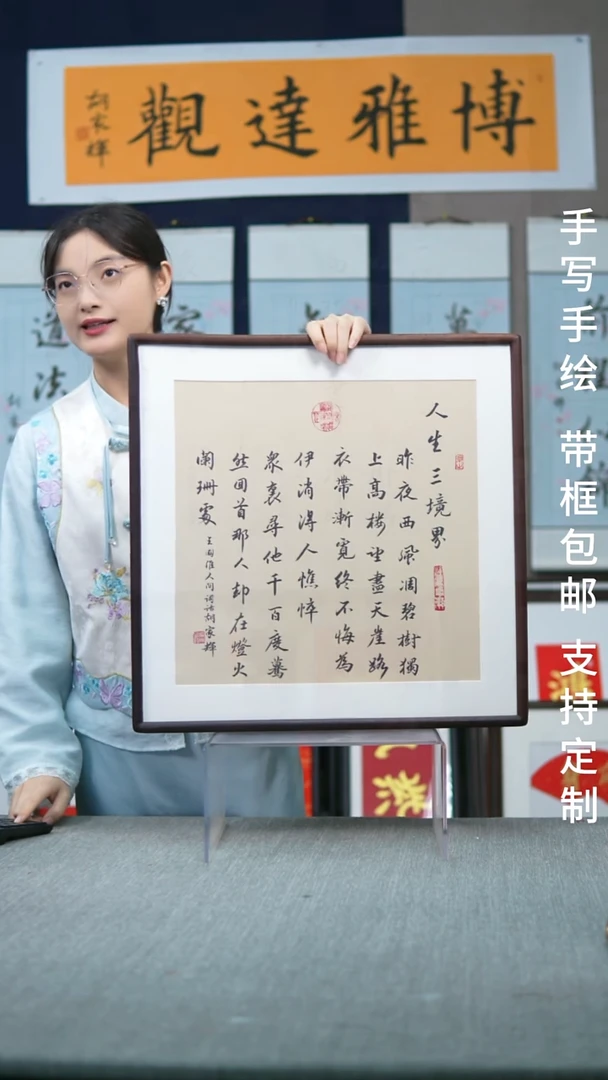 博雅達觀
胡家輝
人生三境界
昨夜西風凋碧樹獨
上高樓望盡天崖路
衣帶漸寬終不悔為
伊消得人憔悴
衆裏尋他千百度驀
然回首那人却在燈火
闌珊處
王國維人间词话胡家輝
手写手绘 带框包邮 支持定制
道法
家